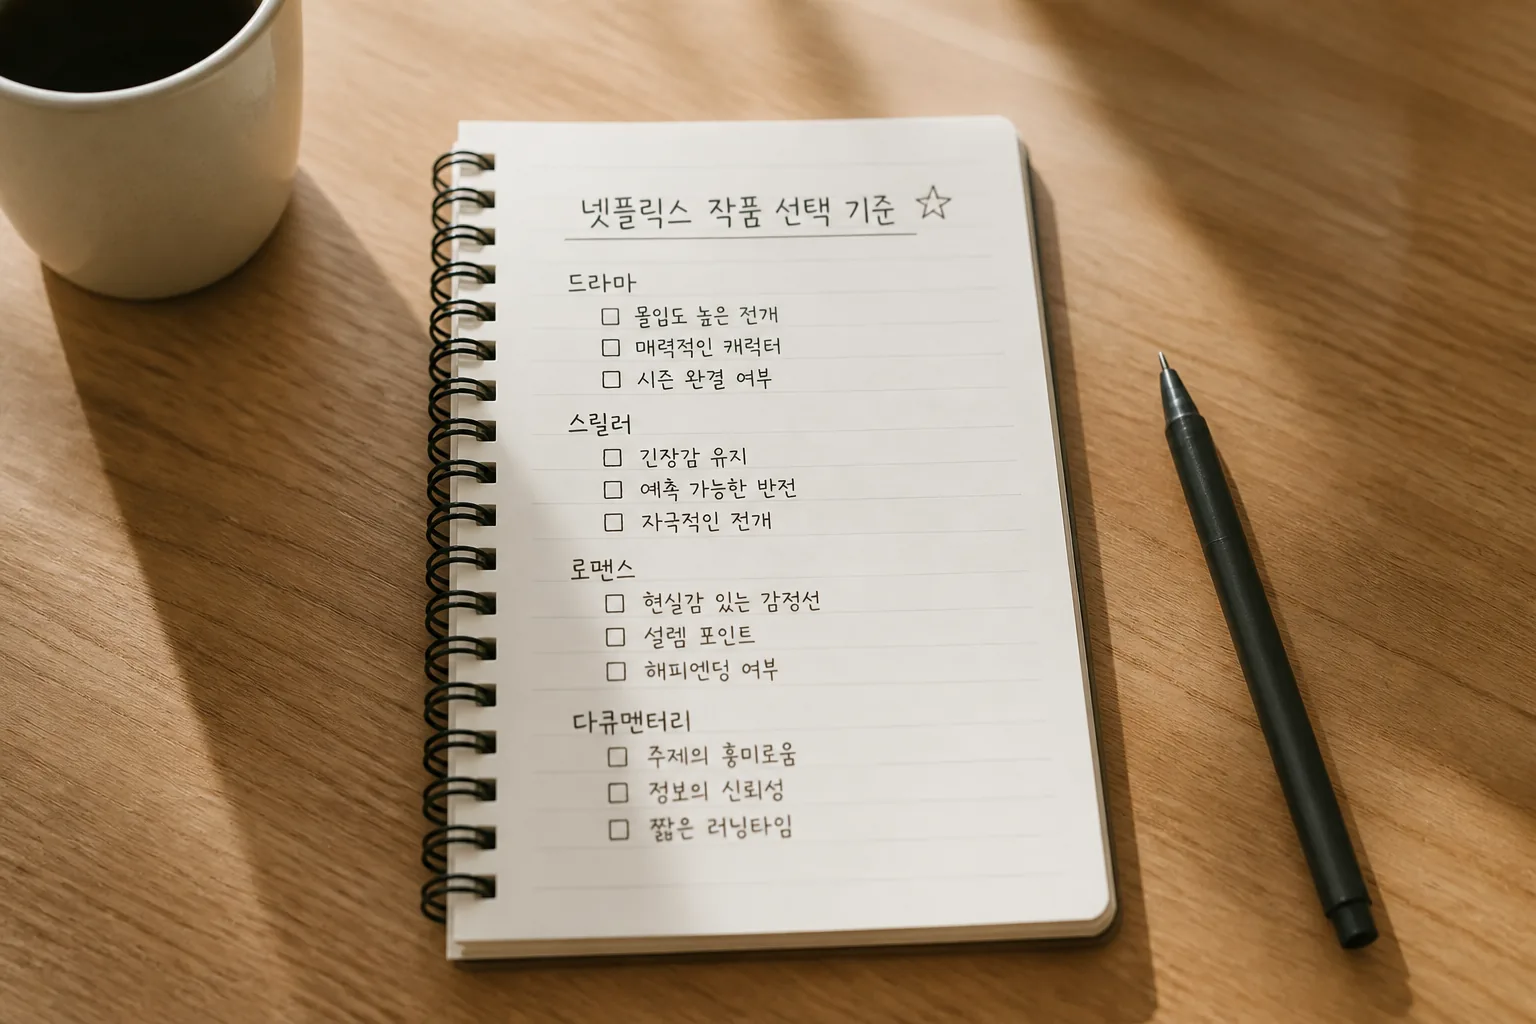 넷플릭스 작품 선택 기준 ☆
드라마
□ 몰입도 높은 전개
□ 매력적인 캐럭터
□ 시즌 완결 여부
스릴러
□ 긴장감 유지
□ 예측 가능한 반전
□ 자극적인 전개
로맨스
□ 현실감 있는 감정선
□ 설렘 포인트
□ 해피엔딩 여부
다큐멘터리
□ 주제의 흥미로움
□ 정보의 신뢰성
□ 짧은 러닝타임